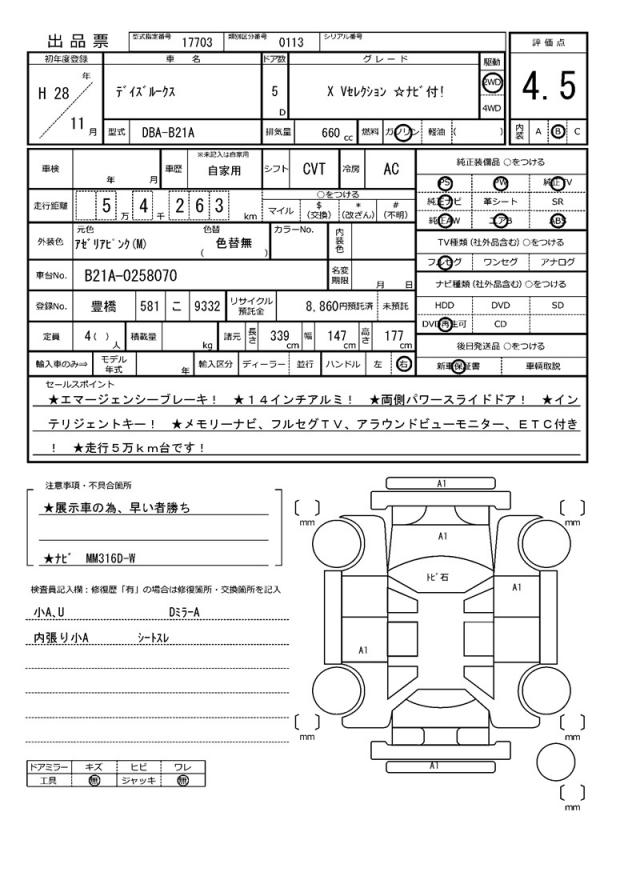 出品票 型式指定番号 17703 類別区分番号 0113 シリアル番号
初年度登録 車名 ドア数 グレード 駆動 評価点
H 28 年 11 月
ﾃﾞｲｽﾞﾙｰｸｽ 5 D X Vセレクション ☆ナビ付! 2WD 4WD 4.5
型式 DBA-B21A 排気量 660 cc 燃料 ガソリン 軽油 ( ) 内装 A B C
車検 年 月 車歴 ※未記入は自家用 自家用 シフト CVT 冷房 AC
純正装備品 ○をつける
PS PW 純正TV
純正ナビ 革シート SR
純正AW エアB ABS
走行距離 5 万 4 千 2 6 3 km ○をつける
マイル $ (交換) * (改ざん) # (不明)
外装色 元色 ｱｾﾞﾘｱﾋﾟﾝｸ(M) 色替 ( 色替無 ) カラーNo. 内装色
TV種類 (社外品含む) ○をつける
フルセグ ワンセグ アナログ
車台No. B21A-0258070 名変期限 月 日
ナビ種類 (社外品含む) ○をつける
HDD DVD SD
DVD再生可 CD
登録No. 豊橋 581 こ 9332 リサイクル預託金 8,860円預託済 未預託
定員 4( ) 人 積載量 kg 諸元 長さ 339 cm 幅 147 cm 高さ 177 cm
後日発送品 ○をつける
新車保証書 車輌取説
輸入車のみ⇒ モデル年式 年 輸入区分 ディーラー 並行 ハンドル 左 右
セールスポイント
★エマージェンシーブレーキ! ★14インチアルミ! ★両側パワースライドドア! ★イン
テリジェントキー! ★メモリーナビ、フルセグTV、アラウンドビューモニター、ETC付き
! ★走行5万km台です!
注意事項・不具合箇所
★展示車の為、早い者勝ち
★ﾅﾋﾞ MM316D-W
検査員記入欄:修復歴「有」の場合は修復箇所・交換箇所を記入
小A、U DﾐﾗｰA
内張り小A ｼｰﾄｽﾚ
ドアミラー キズ ヒビ ワレ
工具 無 ジャッキ 無
A1
mm
mm
A1
ﾄﾋﾞ石
A1
A1
mm
mm
A1
mm